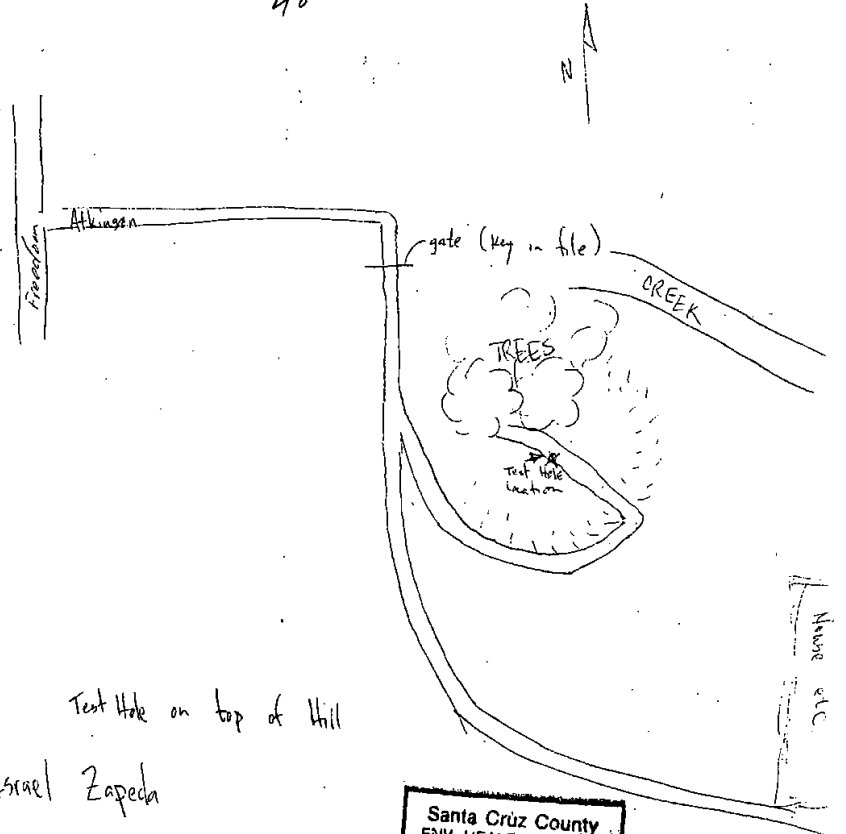 N
Atkinson
Freedom
gate (key in file)
CREEK
TREES
Test Hole
Location
House etc
Test Hole on top of Hill
Israel Zapeda
Santa Cruz County